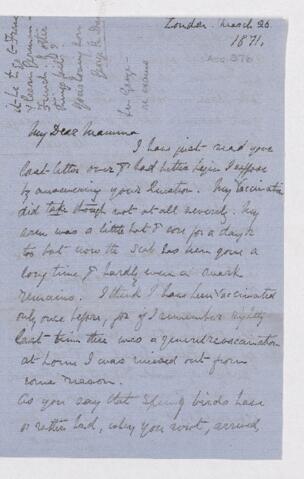 London. March 26
1871.
My Dear Mamma
I have just read your
last letter over & had better begin I suppose
by answering your question. My vaccination
did take though not at all severely. My
arm was a little hot & sore for a day &
so but now the scab has been gone a
long time & hardly even a mark
remains. I think I have been vaccinated
only once before, for if I remember rightly
last time there was a general revaccination
at home I was missed out from
some reason.
As you say that Spring birds have
or rather had, when you wrote, arrived
to go to
German
French or other
things first?
Your loving son
George